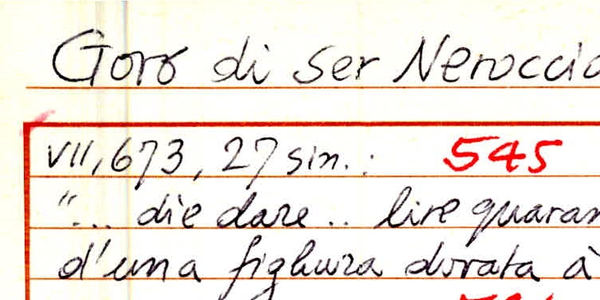 Goro di ser Neroccio
VII, 673, 27 sin.: 545
"... die dare .. lire quaran
d'una fighura dorata à